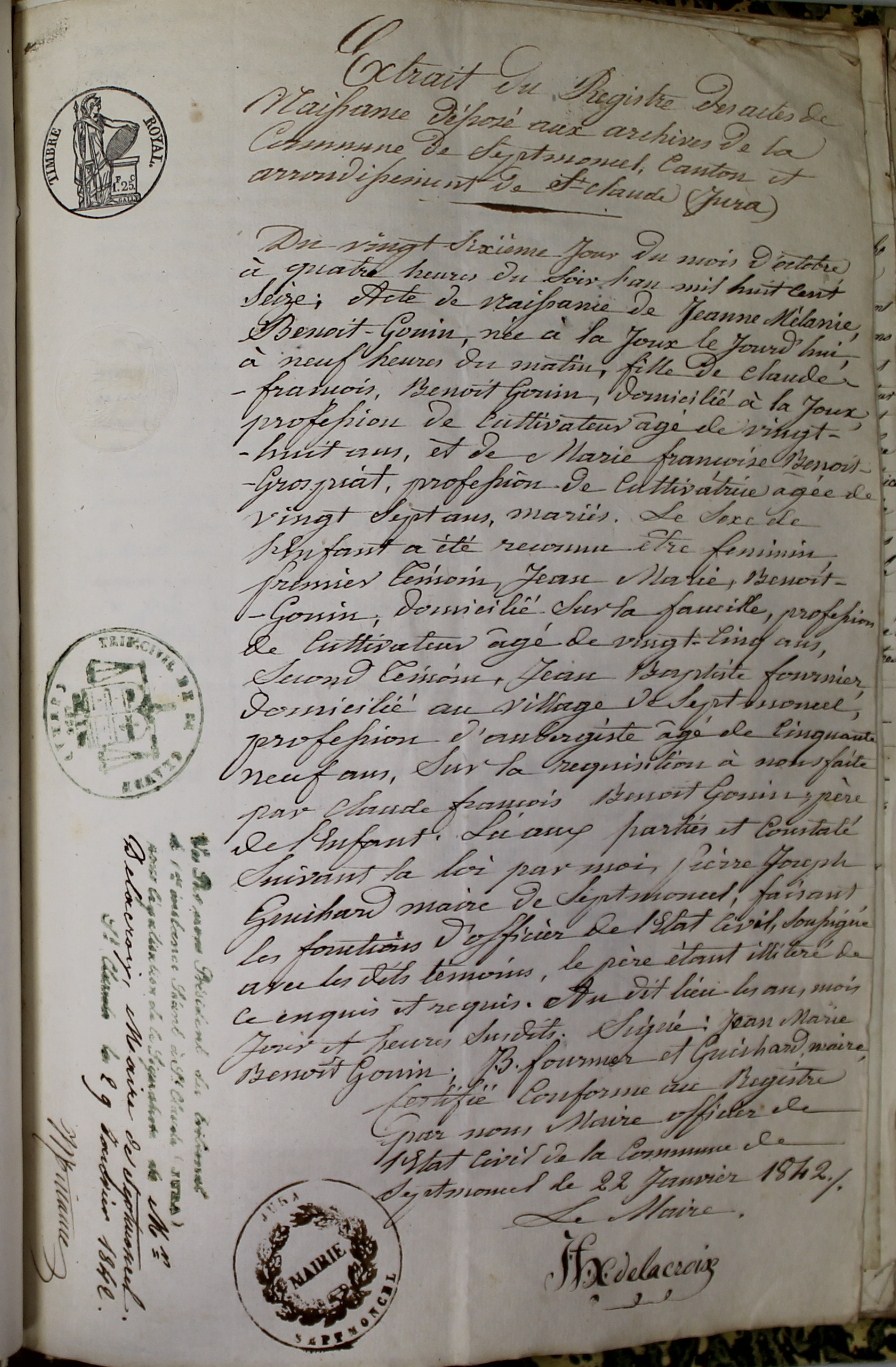 Extrait du Registre des actes de
Naissance déposé aux archives de la
Commune de Septmoncel, Canton et
arrondissement de St Claude (Jura)
TIMBRE ROYAL.
1.25.
Du vingt sixième Jour du mois d'octobre
à quatre heures du Soir l'an mil huit Cent
Seize; Acte de Naissance de Jeanne Mélanie,
Benoit-Gonin, née à la Joux le Jourd'hui
à neuf heures du matin, fille de Claude
-françois, Benoit Gonin, domicilié à la Joux,
profession de Cultivateur âgé de vingt-
-huit ans, et de Marie françoise Benoit-
-Grospiat, profession de Cultivatrice agée de
vingt Sept ans, mariés. Le Sexe de
l'Enfant a été reconnu être feminin
premier témoin, Jean Marie, Benoit-
-Gonin, domicilié Sur la faucille, profession
de Cultivateur âgé de vingt-Cinq ans,
Second témoin, Jean Baptiste fournier,
domicilié au village de Septmoncel,
profession d'aubergiste âgé de Cinquante
neuf ans, Sur la requisition à nous faite
par Claude françois Benoit Gonin, père
de l'Enfant. Lu aux parties et Constaté
Suivant la loi par moi, Pierre Joseph
Guichard maire de Septmoncel, faisant
les fonctions d'officier de l'Etat Civil, Soussigné
avec les dits témoins, le père étant illiteré de
ce enquis et requis. Au dit lieu les an, mois
Jour et heures Susdits. Signé: Jean Marie
Benoit Gonin, B. fournier et Guichard, maire,
Certifié Conforme au Registre
par nous Maire officier de
l'Etat Civil de la Commune de
Septmoncel le 22 Janvier 1842./.
Le Maire.
Fx delacroix
TRIB. CIVIL DE St CLAUDE
Vu Par nous Président du tribunal
de 1re instance Séant à St Claude (JURA)
pour légalisation de la Signature de Mr
Delacroix, Maire de Septmoncel.
St Claude le 29 Janvier 1842.
JURA
MAIRIE
SEPTMONCEL